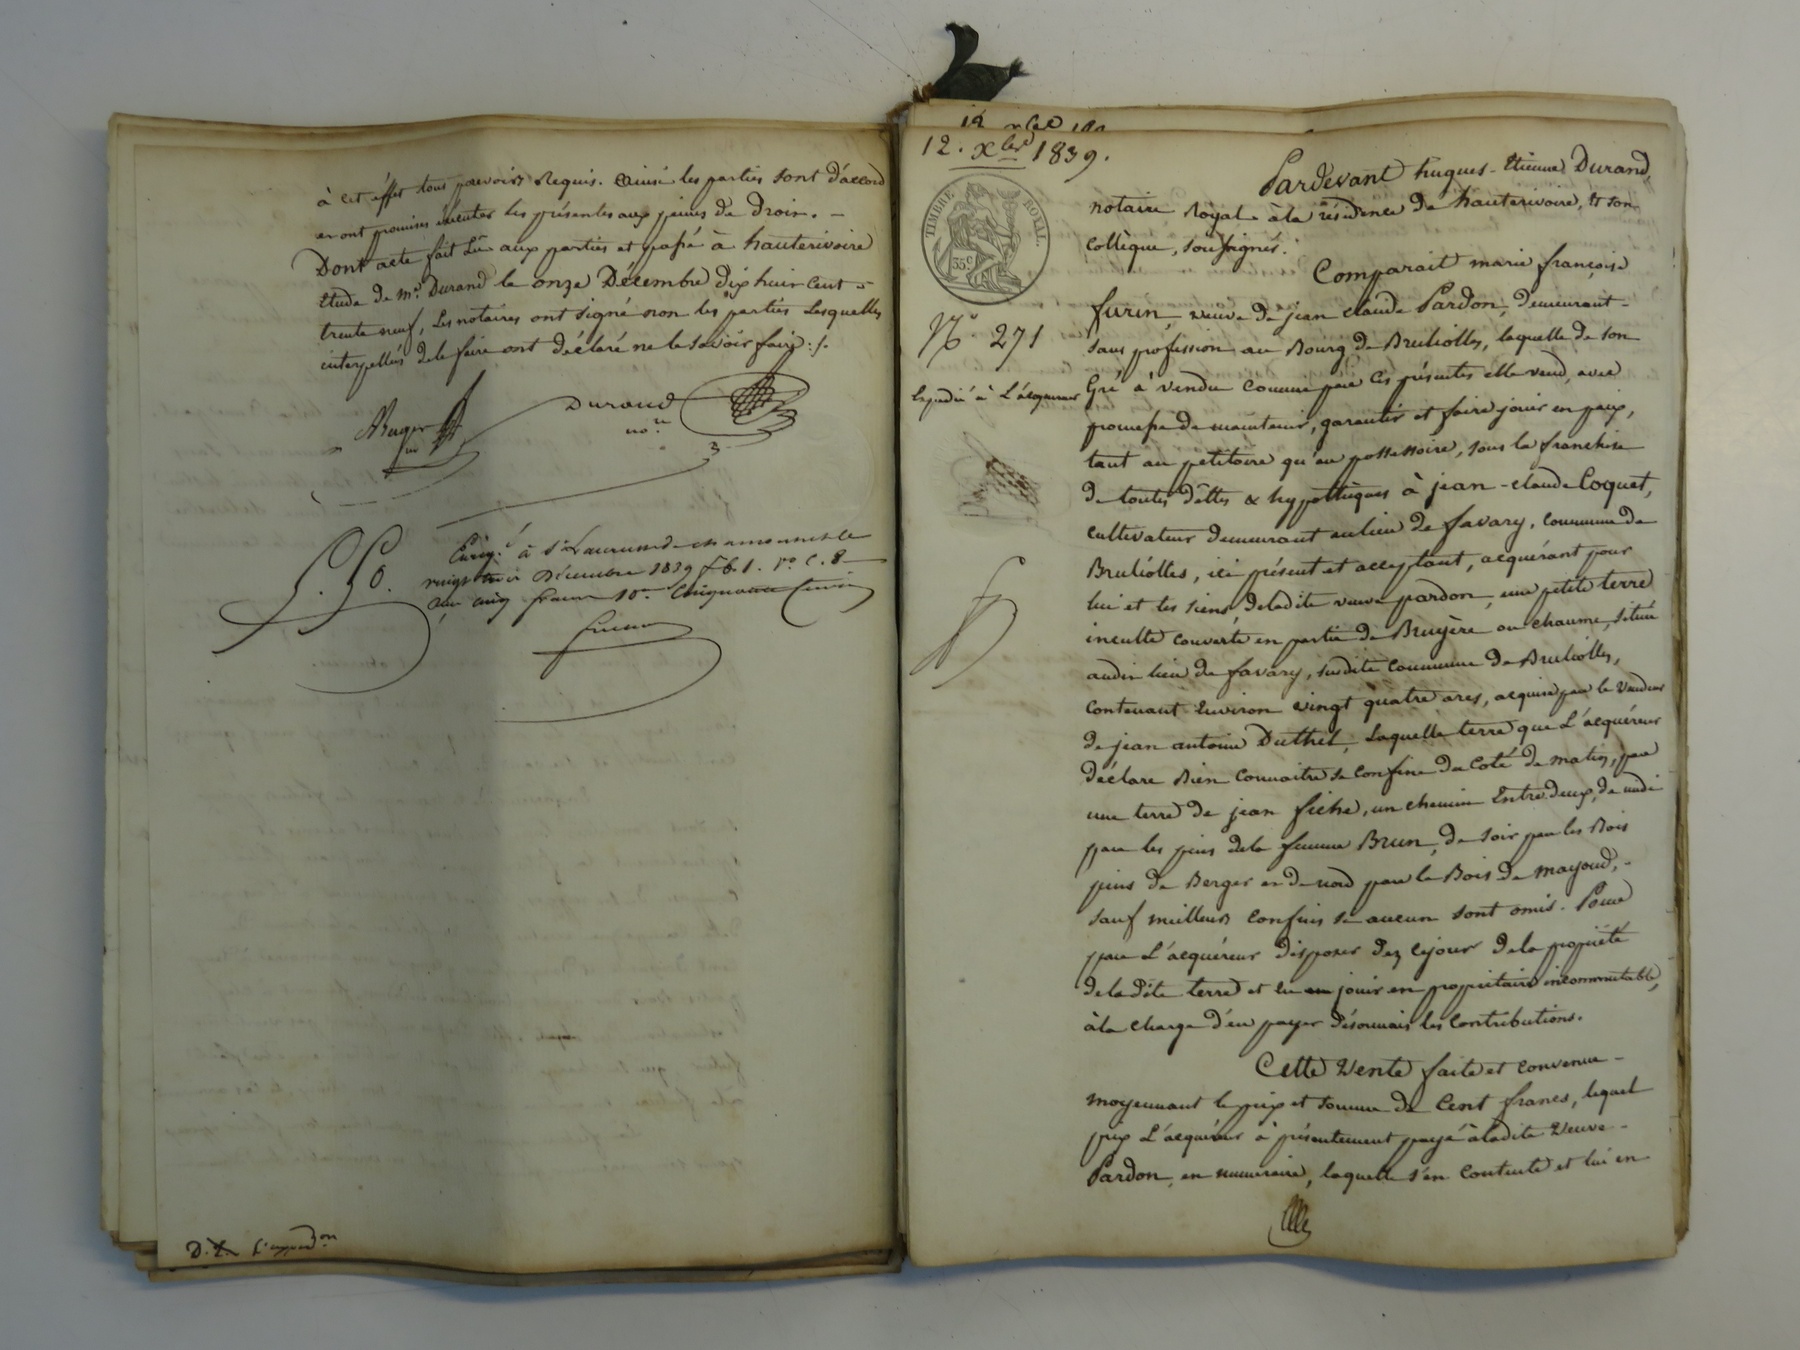 à cet effet tous pouvoirs Requis. Ainsi les parties sont d'accord
et ont promises éxecuter les présentes aux peines de Droit. –
Dont acte fait Lû aux parties et passé à hauterivoire
Etude de Me. Durand le onze Décembre dix huit cent –
trente neuf, Les notaires ont signé non les parties Lesquelles
interpellés de le faire ont déclaré ne le savoir faire ./.
Durand
no.re
3
5.50.
Enreg.é à St Laurent de chamousset le
vingt trois Décembre 1839 f.° 6. 1. r.° c. 8
Reçu cinq francs 10.e Cinquante Centimes
D.L. L'expedon
12 xbre 183
12. Xbre 1839.
TIMBRE ROYAL.
35c.
N.° 271
Expedié à L'acquereur
Pardevant hugues-Etienne Durand,
notaire Royal à la résidence de hauterivoire, & son
collègue, soussignés.
Comparait marie françoise
furin, veuve de jean claude Pardon, demeurant –
sans profession au Bourg de Brulliolles, laquelle de son
Gré à vendu comme par ces présentes elle vend, avec
promesse de maintenir, garantir et faire jouir en paix,
tant au petitoire qu'au possessoire, sous la franchise
de toutes dêttes & hypothèques à jean-claude Coquet,
cultivateur demeurant au lieu de favary, commune de
Brulliolles, ici présent et acceptant, acquérant pour
lui et les siens, de ladite veuve pardon, une petite terre
inculte couverte en partie de Bruyère ou chaume, située
audit lieu de favary, susdite commune de Brulliolles,
contenant Environ vingt quatre ares, acquise par le Vendeur
de jean antoine Duthel, Laquelle terre que L'acquéreur
déclare Bien connaitre se confine du coté de matin, par
une terre de jean fiche, un chemin Entre deux, de midi
par les pins de la femme Brun, de soir par les Bois
pins de Berger et de nord par le Bois de mayoud, –
sauf meilleurs confins si aucun sont omis. Pour
par L'acquéreur disposer dez cejour de la propriété
de la dite terre et en jouir en propriétaire incommutable,
à la charge d'en payer désormais les contributions.
Cette Vente faite et convenue –
moyennant le prix et somme de Cent francs, lequel
prix L'acquéreur à présentement payé à ladite Veuve –
Pardon, en numéraire, laquelle s'en contente et lui en